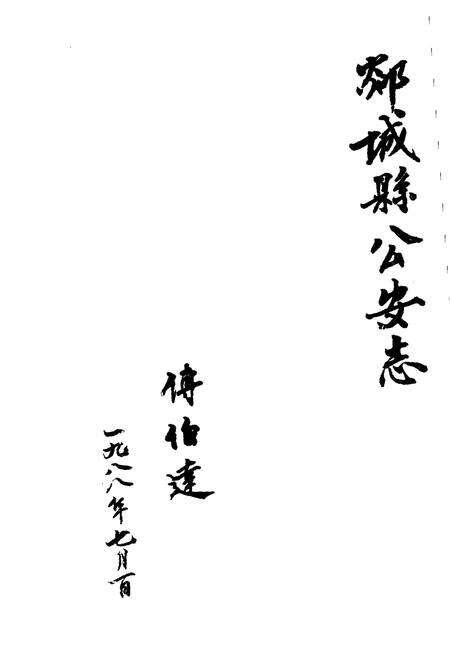 郯城縣公安志
傅伯達
一九八八年七月一日